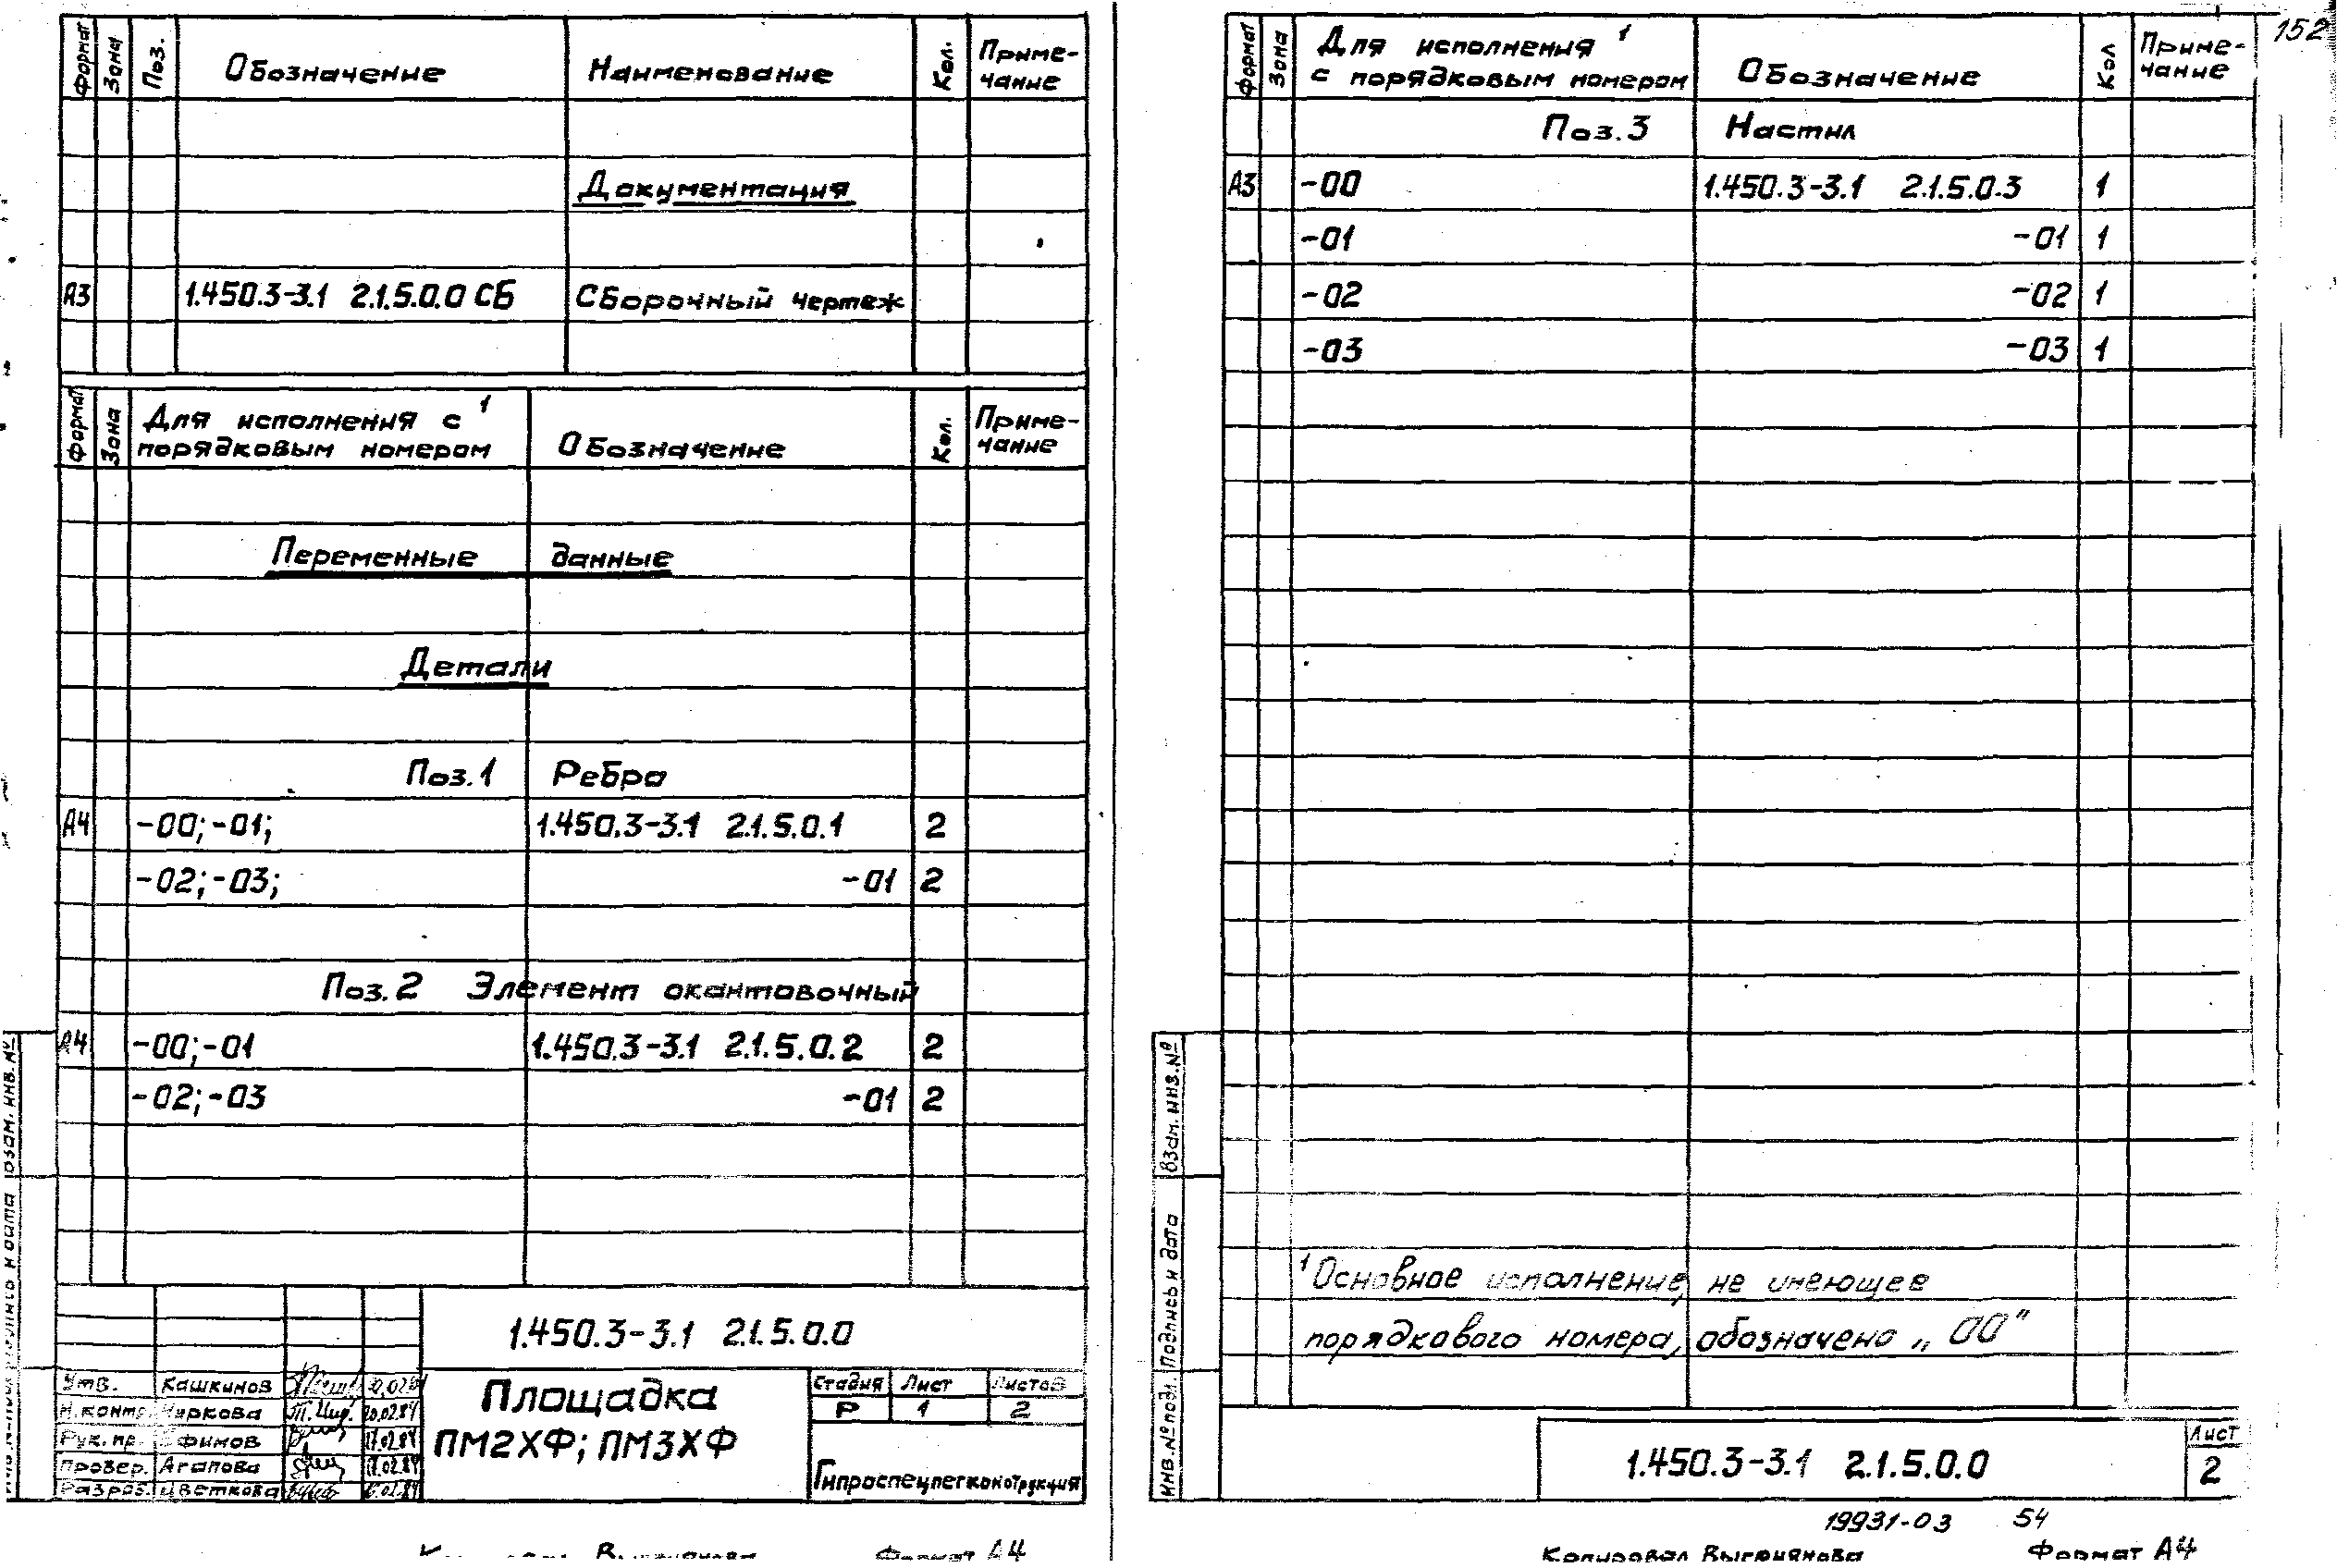 Формат Зона Поз. Обозначение Наименование Кол. Приме-
чание
Документация
А3 1.450.3-3.1 2.1.5.0.0 СБ Сборочный чертеж
Формат Зона Для исполнения с ¹ Обозначение Кол. Приме-
порядковым номером чание
Переменные данные
Детали
Поз.1 Ребра
А4 -00;-01; 1.450.3-3.1 2.1.5.0.1 2
-02;-03; -01 2
Поз.2 Элемент окантовочный
А4 -00;-01 1.450.3-3.1 2.1.5.0.2 2
-02;-03 -01 2
взам. инв.№
1.450.3-3.1 2.1.5.0.0
Утв. Кашкинов
Н.контр. Чиркова 20.02.84
Рук.пр. Ефимов 17.02.84
Провер. Агапова 17.02.84
Разраб. Цветкова
Площадка
ПМ2ХФ; ПМ3ХФ
Стадия Лист Листов
Р 1 2
Гипроспецлегконструкция
Формат А4
152
Формат Зона Для исполнения ¹ Обозначение Кол Приме-
с порядковым номером чание
Поз.3 Настил
А3 -00 1.450.3-3.1 2.1.5.0.3 1
-01 -01 1
-02 -02 1
-03 -03 1
¹ Основное исполнение, не имеющее
порядкового номера, обозначено „ 00"
Взам. инв.№
Подпись и дата
Инв.№ подл.
1.450.3-3.1 2.1.5.0.0
Лист
2
19931-03 54
Копировал Формат А4